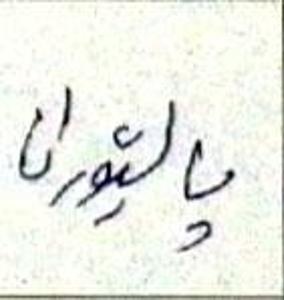 پالیتورانا